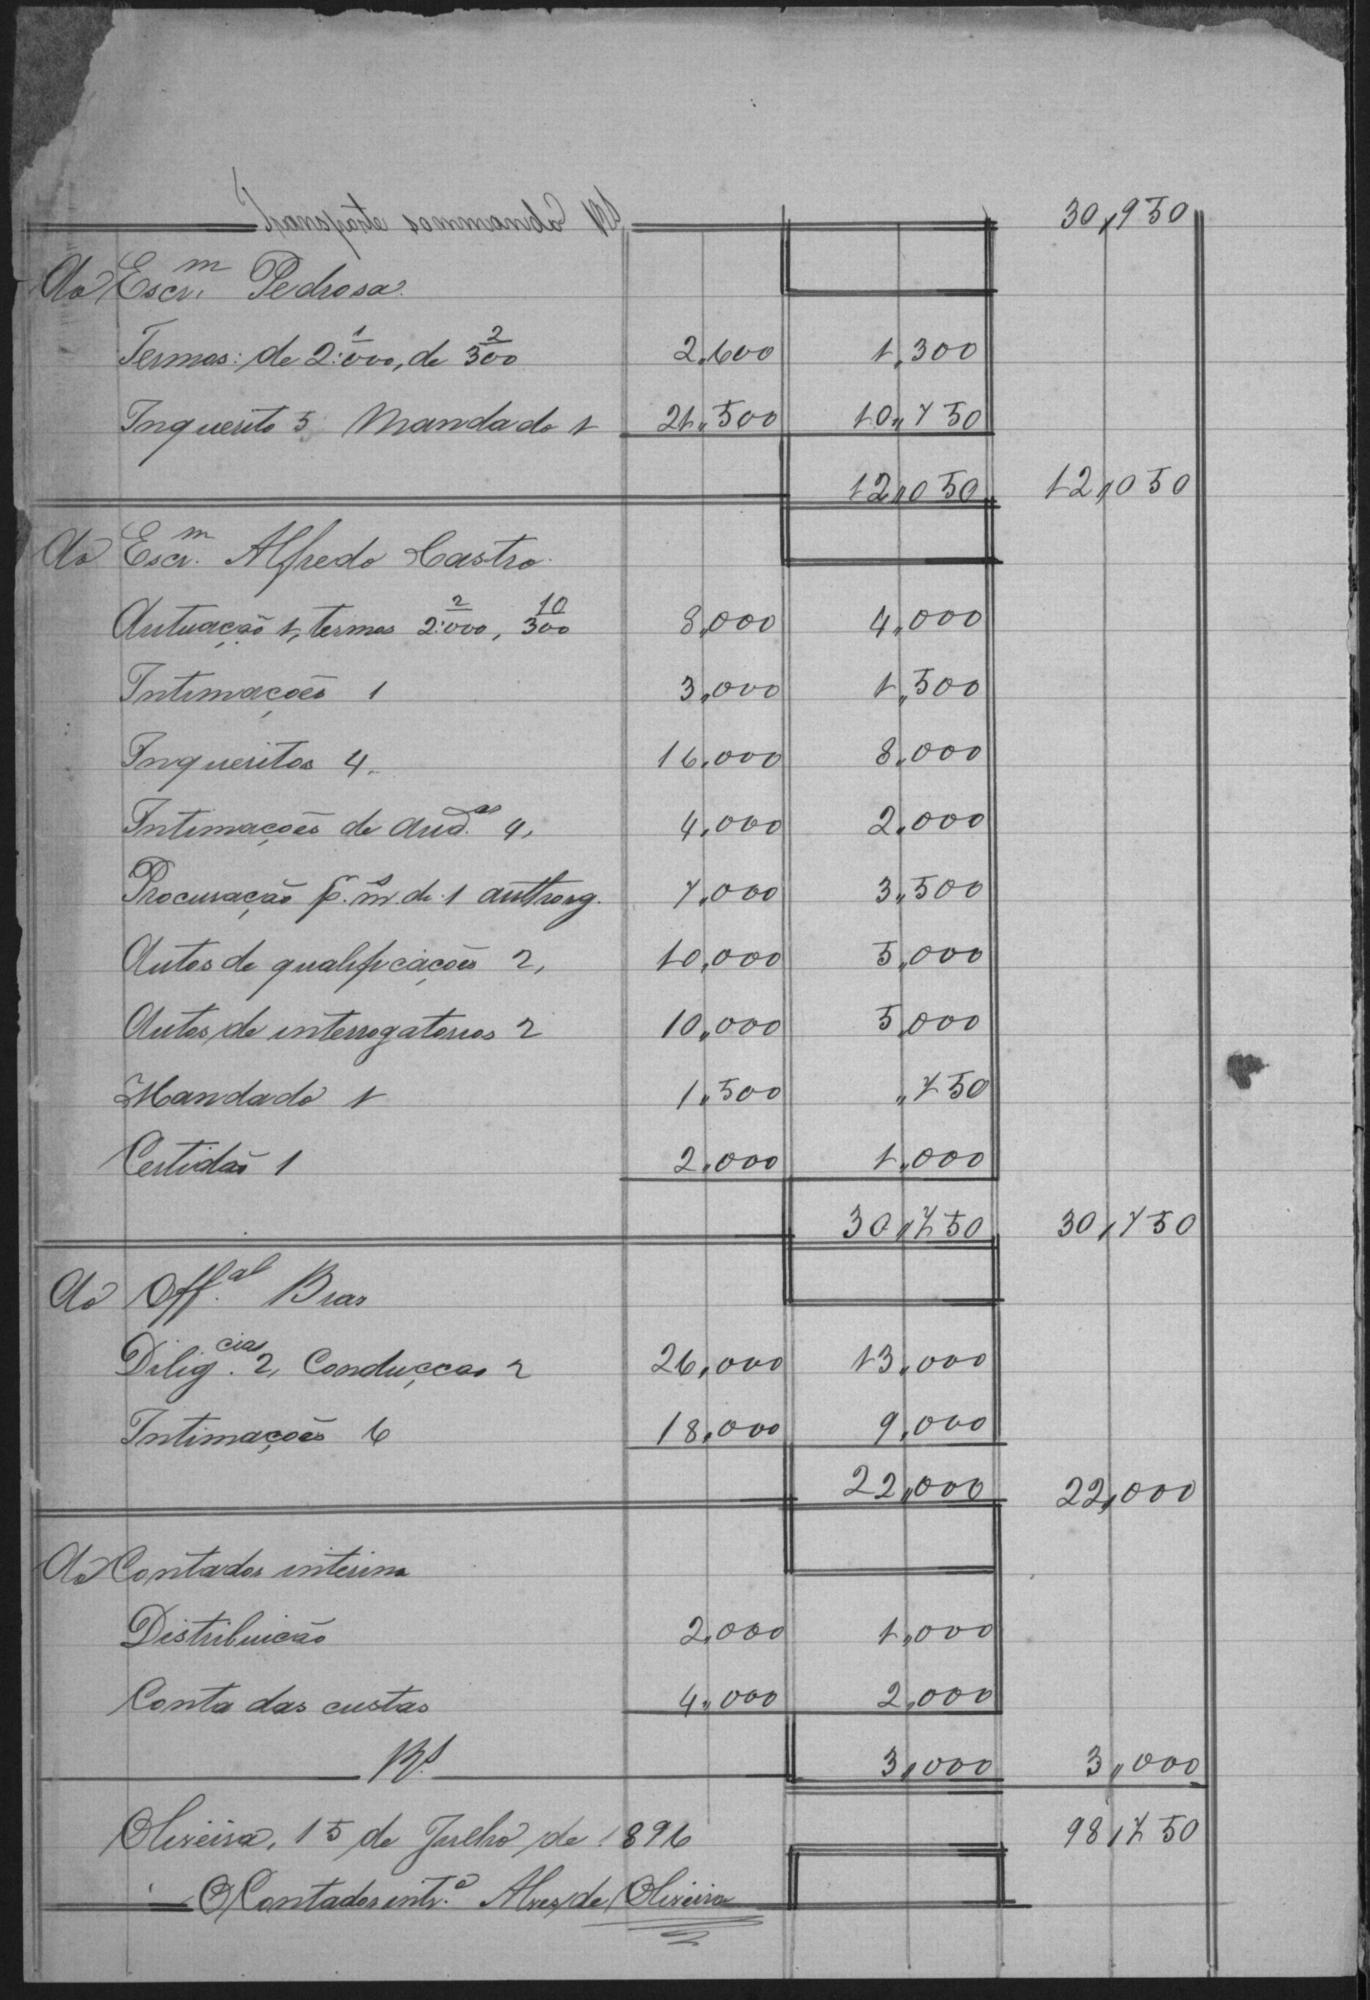 Transporte sommando Rs 30,950
Ao Escr.m Pedrosa
Termos: de 2:000, 1 de 300 2 2,600 1,300
Inquerito 5 Mandado 1 21,500 10,750
12,050 12,050
Ao Escr.m Alfredo Castro
Autuação 1, termos 2:000 2, 300 10 8,000 4,000
Intimações 1 3,000 1,500
Inqueritos 4. 16,000 8,000
Intimações de aud.as 4, 4,000 2,000
Procuração p. 1 7,000 3,500
Autos de qualificações 2, 10,000 5,000
Autos de interrogatorios 2 10,000 5,000
Mandado 1 1,500 ,750
Certidão 1 2,000 1,000
30,750 30,750
Ao Off.al Bras
Dilig.cias 2, Conducçao 2 26,000 13,000
Intimações 6 18,000 9,000
22,000 22,000
Ao Contador interino
Distribuicão 2,000 1,000
Conta das custas 4,000 2,000
Rs. 3,000 3,000
Oliveira, 15 de Julho de 1896 98,750
O Contador intr.o Alves de Oliveira